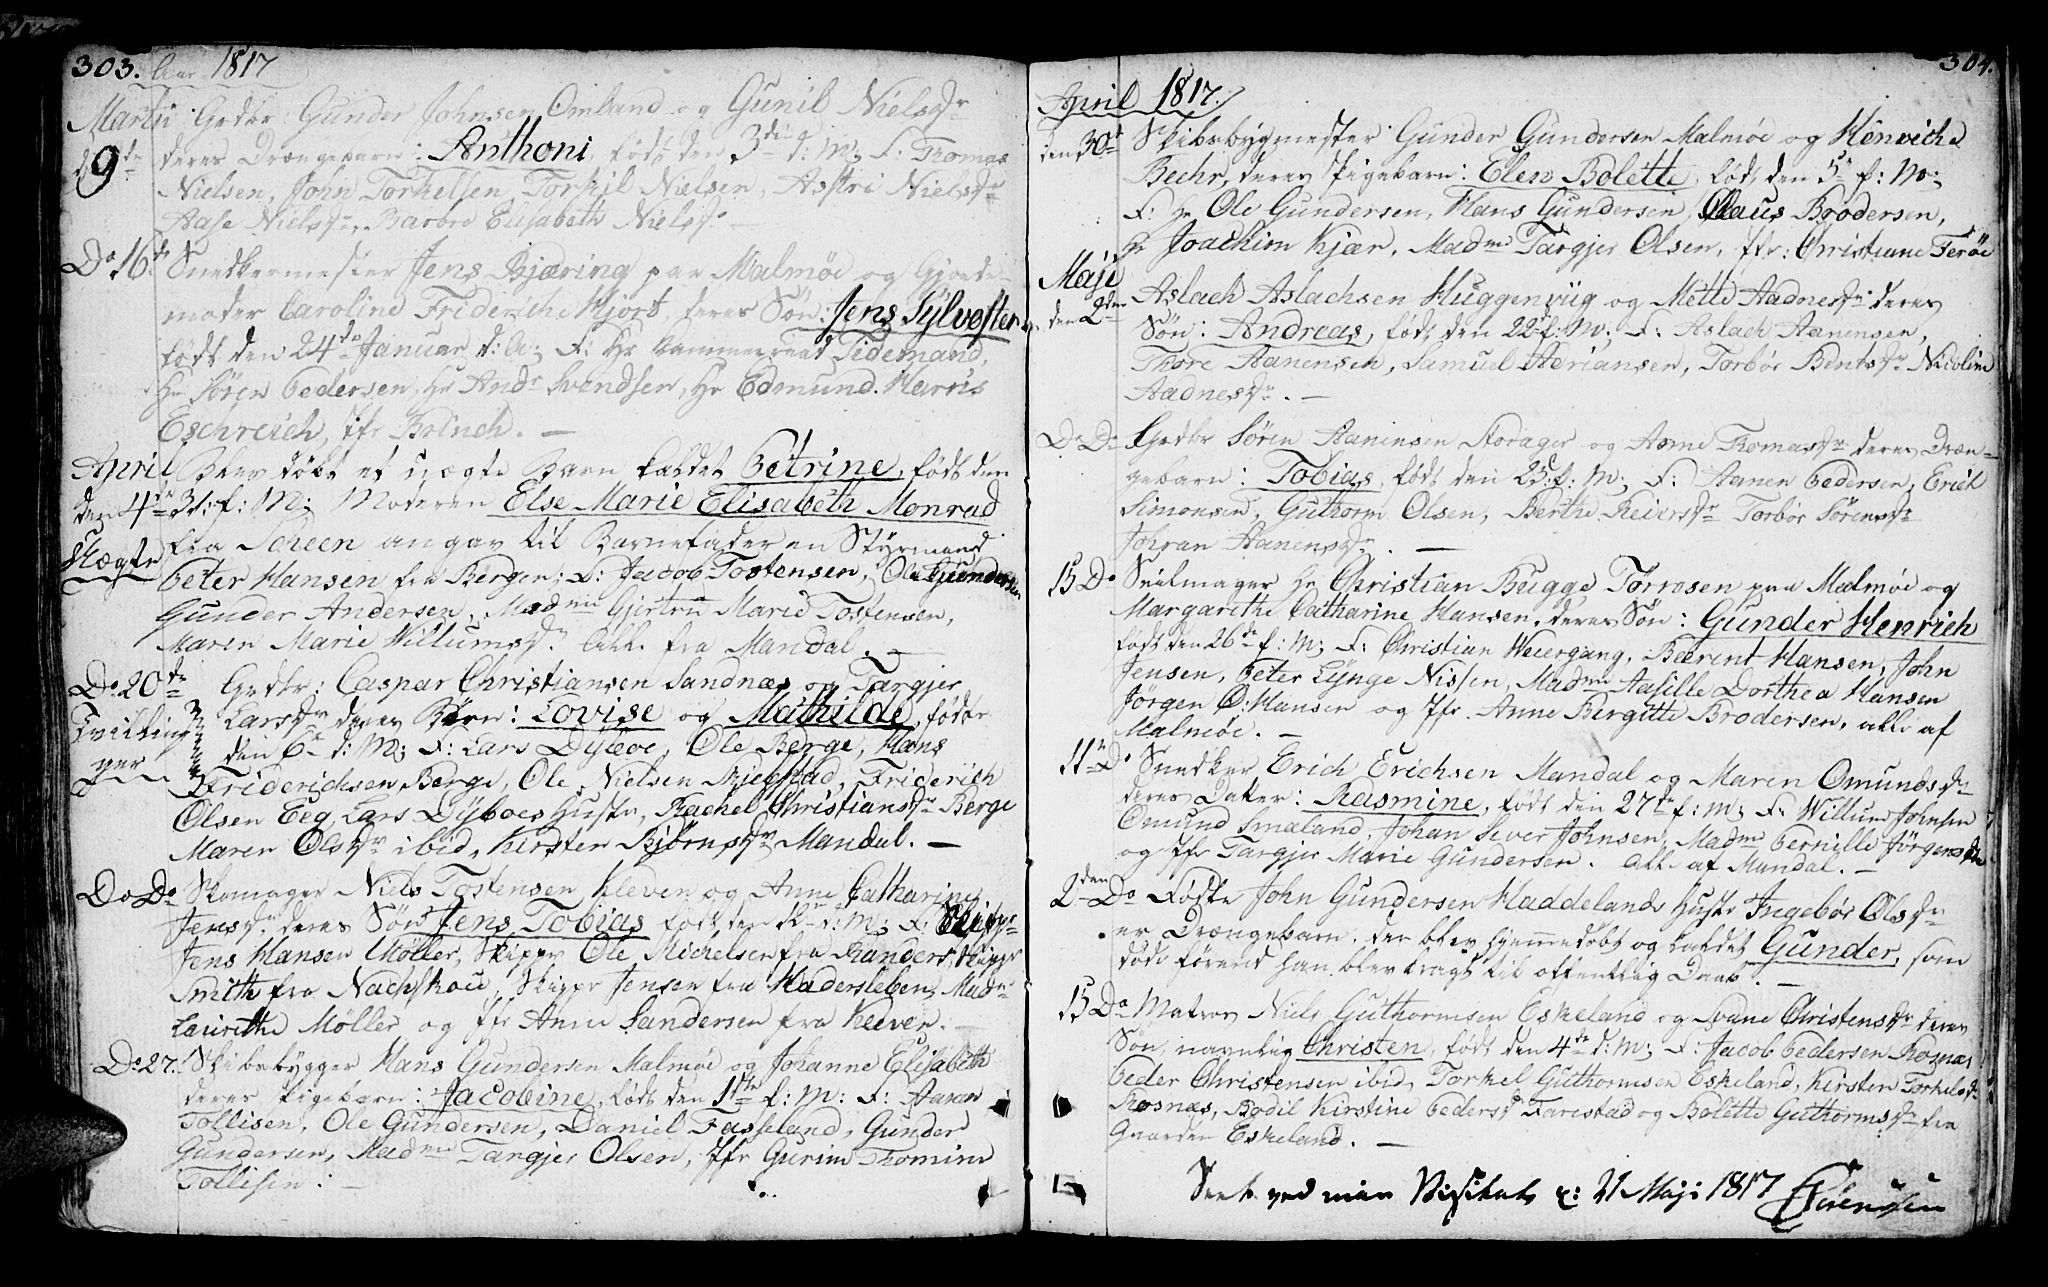 303. Aar 1817
Martii Grdbr: Gunder Johnsen Omland og Gunil Nielsdr
d 9de deres Drængebarn: Anthoni, født den 3die d: M; F: Thomas
Nielsen, John Torkelsen, Torkil Nielsen, Astri Nielsdr
Aase Nielsdr, Barbro Elisabeth Nielsdr
Do 16de Snedkermester Jens Bjæring paa Malmøe og Gjorde-
moder Caroline Frideriche Hjort, deres Søn: Jens Sylvester
født den 24de Januar d: A; F: Hr Cammerraad Tidemand,
Hr Søren Pedersen, Hr Andr Svendsen, Hr Edmund Harris
Eschreich, Jfr Brinch. —
April Blev døbt et uægte Barn kaldet Petrine, født den
den 4de 31: f: M; Moderen Else Marie Elisabeth Monrad
Uægte fra Scheen angav til Barnefader en Styrmand
Peter Hansen fra Bergen; F: Jacob Tostensen, Ole Gundersen
Gunder Andersen, Madme Gjertru Marie Tostensen,
Maren Marie Willumsdr. Alle fra Mandal. —
Do 20de Grdbr: Caspar Christiansen Sandnæs og Targjer
Tvillin Larsdr deres Børn: Lovise og Mathilde, fødte
ger den 6te d: M; F: Lars Dyboe, Ole Berge, Hans
Friderichsen Berge, Ole Nielsen Skiegstad, Friderich
Olsen Eeg, Lars Dyboes Hustr, Rachel Christiansdr Berge
Maren Olsdr ibid, Kirsten Bjørnsdr Mandal. —
Do Do Skomager Niels Tostensen Kleven og Anne Catharine
Jensdr deres Søn Jens Tobias født den d: M; F: Skippr
Jens Hansen Møller, Skippr Ole Michelsen fra Randers, Skippr
Smith fra Nachskou, Skippr Jensen fra Hadersleben, Madme
Laurethe Møller og Jfr Anne Sandersen fra Kleven. —
Do 27. Skibsbygger Hans Gundersen Malmøe og Johanne Elisabeth
deres Pigebarn: Jacobine, født den 1ste f: M: F: Aaran
Tollisen, Ole Gundersen, Daniel Fasseland, Gunder
Gundersen, Madme Targjer Olsen, Jfr Gurine Thomine
Tollisen: —
304.
April 1817.
den 30te Skibsbygmester Gunder Gundersen Malmøe og Henriche
Beehr, deres Pigebarn: Elen Bolette, født den 5te f: M;
F: Hr Ole Gundersen, Hans Gundersen, Claus Brodersen,
Hr Joachim Kjær, Madme Targjer Olsen, Jfr: Christiane Ferøe
Maji Aslach Aslachsen Huggenyüg og Mette Aadnesdr deres
den 2den Søn: Andreas, født den 22: f: M; F: Aslach Aanensen,
Thore Aanensen, Samuel Adriansen, Torbor Bentsdr Nicoline
Aadnesdr. —
Do Do Grdbr Søren Aanensen Storager og Asne Thomasdr deres Dræn-
gebarn: Tobias, født den 23: f: M; F: Aanen Pedersen, Erich
Simonsen, Guthorm Olsen, Berthe Reiersdr Torbor Sørensdr
Johran Aanensdr. —
15 Do Seilmager Hr Christian Bugge Torrosen paa Malmøe og
Margarethe Catharine Hansen, deres Søn: Gunder Henrich
født den 26de f: M; F: Christian Weiergang, Beerent Hansen, John
Jensen, Peter Lynge Nissen, Madme Aasille Dorthea Hansen
Jørgen O. Hansen og Jfr. Anne Bergitte Brodersen, alle af
Malmøe. —
11te Do Snedker Erich Erichsen Mandal og Maren Omundsdr
deres Datter: Rasmine, født den 27de f: M; F: Willum Johnsen
Omund Smaland, Johan Sever Johnsen, Madme Pernille Jørgensdr
og Jfr Targjer Marie Gundersen. Alle af Mandal. —
2den Do Fødte John Gundersen Haddelands Hustr Ingebor Olsdr
et Drengebarn, der blev hjemmedøbt og kaldet Gunder, som
døde førend han blev bragt til offentlig Daab. —
15 Do Matros Niels Guthormsen Eskeland og Svane Christensdr deres
Søn navnlig Christen, født den 4de d: M; F: Jacob Pedersen Rosnæs,
Peder Christensen ibid, Torkel Guthormsen Eskeland, Kirsten Torkelsdr
Rosnæs, Bodil Kirstine Pedersdr Farestad og Bolette Guthormsdr fra
Gaarden Eskeland. —
Seet ved min Visitats d: 21 Maji 1817 Sørenssen